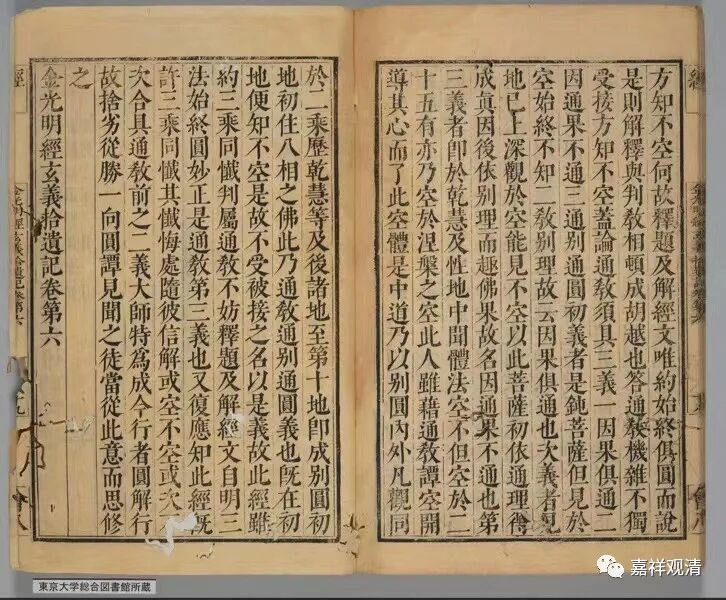 方知不空何故釋題及解經文唯約始終俱圓而說
是則解釋與判教相頓成胡越也答通教機雜不獨
受接方知不空蓋論通教須具三義一因果俱通二
因通果不通三通別通圓初義者是鈍菩薩但見於
空始終不知二教別理故云因果俱通也次義者見
地已上深觀於空能見不空以此菩薩初依通理得
成眞因後依別理而趣佛果故名因通果不通也第
三義者即於乾慧及性地中聞體法空不但空於二
十五有亦乃空於涅槃之空此人雖藉通教譚空開
導其心而了此空體是中道乃以別圓內外凡觀同
於二乘歷乾慧等及後諸地至第十地即成別圓初
地初住八相之佛此乃通教通別通圓義也既在初
地便知不空是故不受被接之名以是義故此經雖
約三乘同懺判屬通教不妨釋題及解經文自明三
法始終圓妙正是通教第三義也又復應知此經既
許三乘同懺其懺悔處隨彼信解或空不空或次
次合具通教前之二義大師特為成今行者圓解行
故捨劣從勝一向圓譚見聞之徒當從此意而思修
之
金光明經玄義拾遺記卷第六
東京大学総合図書館所蔵
嘉祥观清